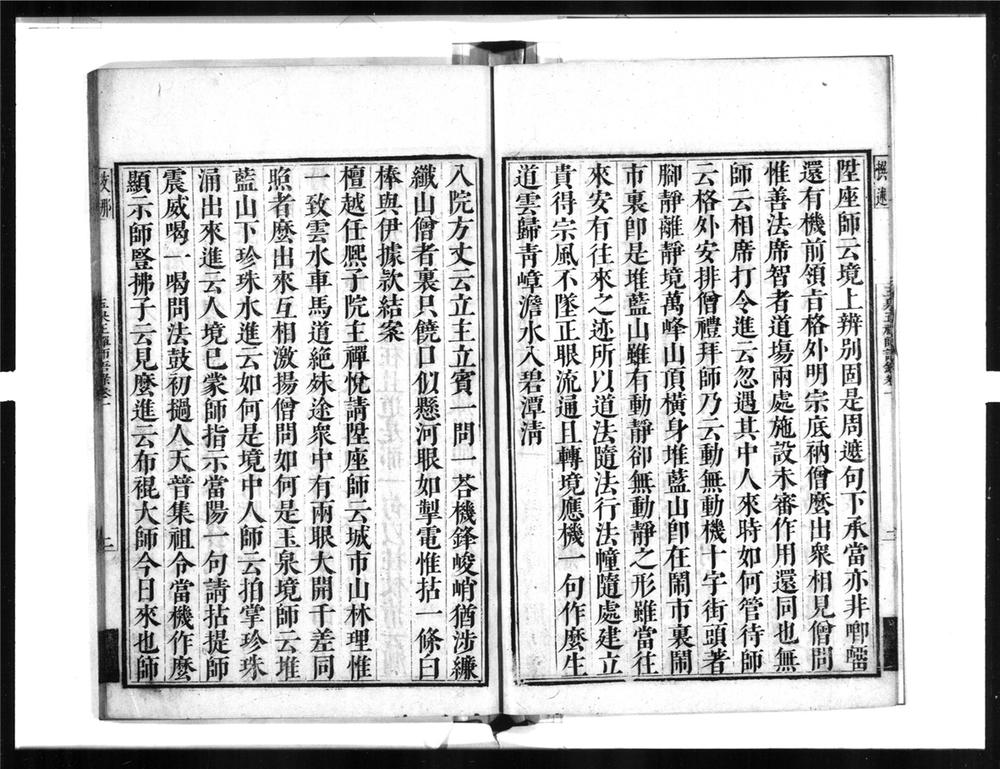 陞座師云境上辨别固是周遮句下承當亦非啣𡎺
還有機前領㫖格外明宗底衲僧麼出衆相見僧問
惟善法席智者道塲兩處施設未審作用還同也無
師云相席打令進云忽遇其中人來時如何管待師
云格外安排僧禮拜師乃云動無動機十字街頭著
腳靜離靜境萬峰山頂橫身堆藍山卽在鬧市裏鬧
市裏卽是堆藍山雖有動靜卻無動靜之形雖當往
來安有往來之迹所以道法隨法行法幢隨處建立
貴得宗風不墜正眼流通且轉境應機一句作麼生
道雲歸靑嶂澹水入碧潭淸
入院方丈云立主立賓一問一荅機鋒峻峭猶涉纖
纖山僧者裏只饒口似懸河眼如掣電惟拈一條白
棒與伊據款結案
檀越任熈子院主禪悅請陞座師云城市山林理惟
一致雲水車馬道絶殊途衆中有兩眼大開千差同
照者麼出來互相激揚僧問如何是玉泉境師云堆
藍山下珍珠水進云如何是境中人師云拍掌珍珠
涌出來進云人境已蒙師指示當陽一句請拈提師
震威喝一喝問法鼓初撾人天普集祖令當機作麼
顯示師豎拂子云見麼進云布裩大師今日來也師